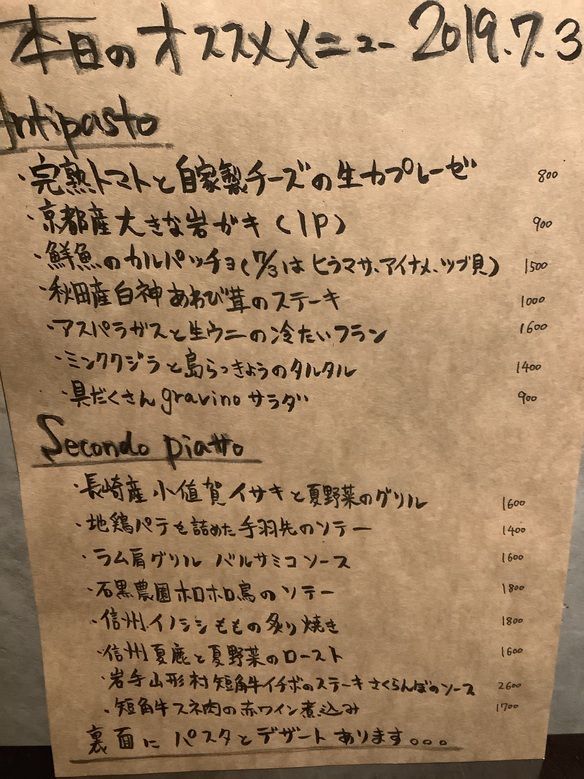 本日のオススメメニュー 2019.7.3
Antipasto
・完熟トマトと自家製チーズの生カプレーゼ 800
・京都産大きな岩ガキ(1P) 900
・鮮魚のカルパッチョ(7/3は ヒラマサ、アイナメ、ツブ貝) 1500
・秋田産白神あわび茸のステーキ 1000
・アスパラガスと生ウニの冷たいフラン 1600
・ミンククジラと島らっきょうのタルタル 1400
・具だくさん gravino サラダ 900
Secondo piatto
・長崎産 小値賀 イサキと夏野菜のグリル 1600
・地鶏パテを詰めた手羽先のソテー 1400
・ラム肩グリル バルサミコソース 1600
・石黒農園ホロホロ鳥のソテー 1800
・信州イノシシももの炙り焼き 1800
・信州夏鹿と夏野菜のロースト 1600
・岩手山形村短角牛イチボのステーキ さくらんぼのソース 2600
・短角牛スネ肉の赤ワイン煮込み 1700
裏面に パスタとデザートあります。。。